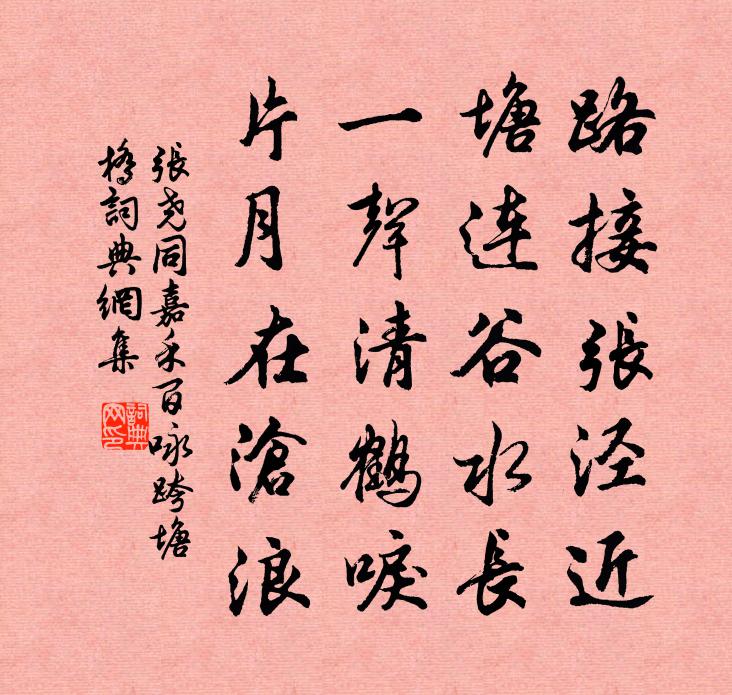 路接張泾近
塘连谷水長
一聲清鶴唳
片月在滄浪
張尧同嘉禾百咏跨塘
橋詞典網集
詞典网印